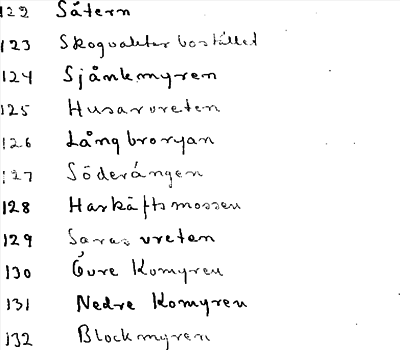 122 Såtern
123 Skogvaktarbostället
124 Sjånkmyren
125 Husarvreten
126 Långbroryan
127 Söderängen
128 Harkäftsmossen
129 Saras vreten
130 Övre Komyren
131 Nedre Komyren
132 Blockmyren